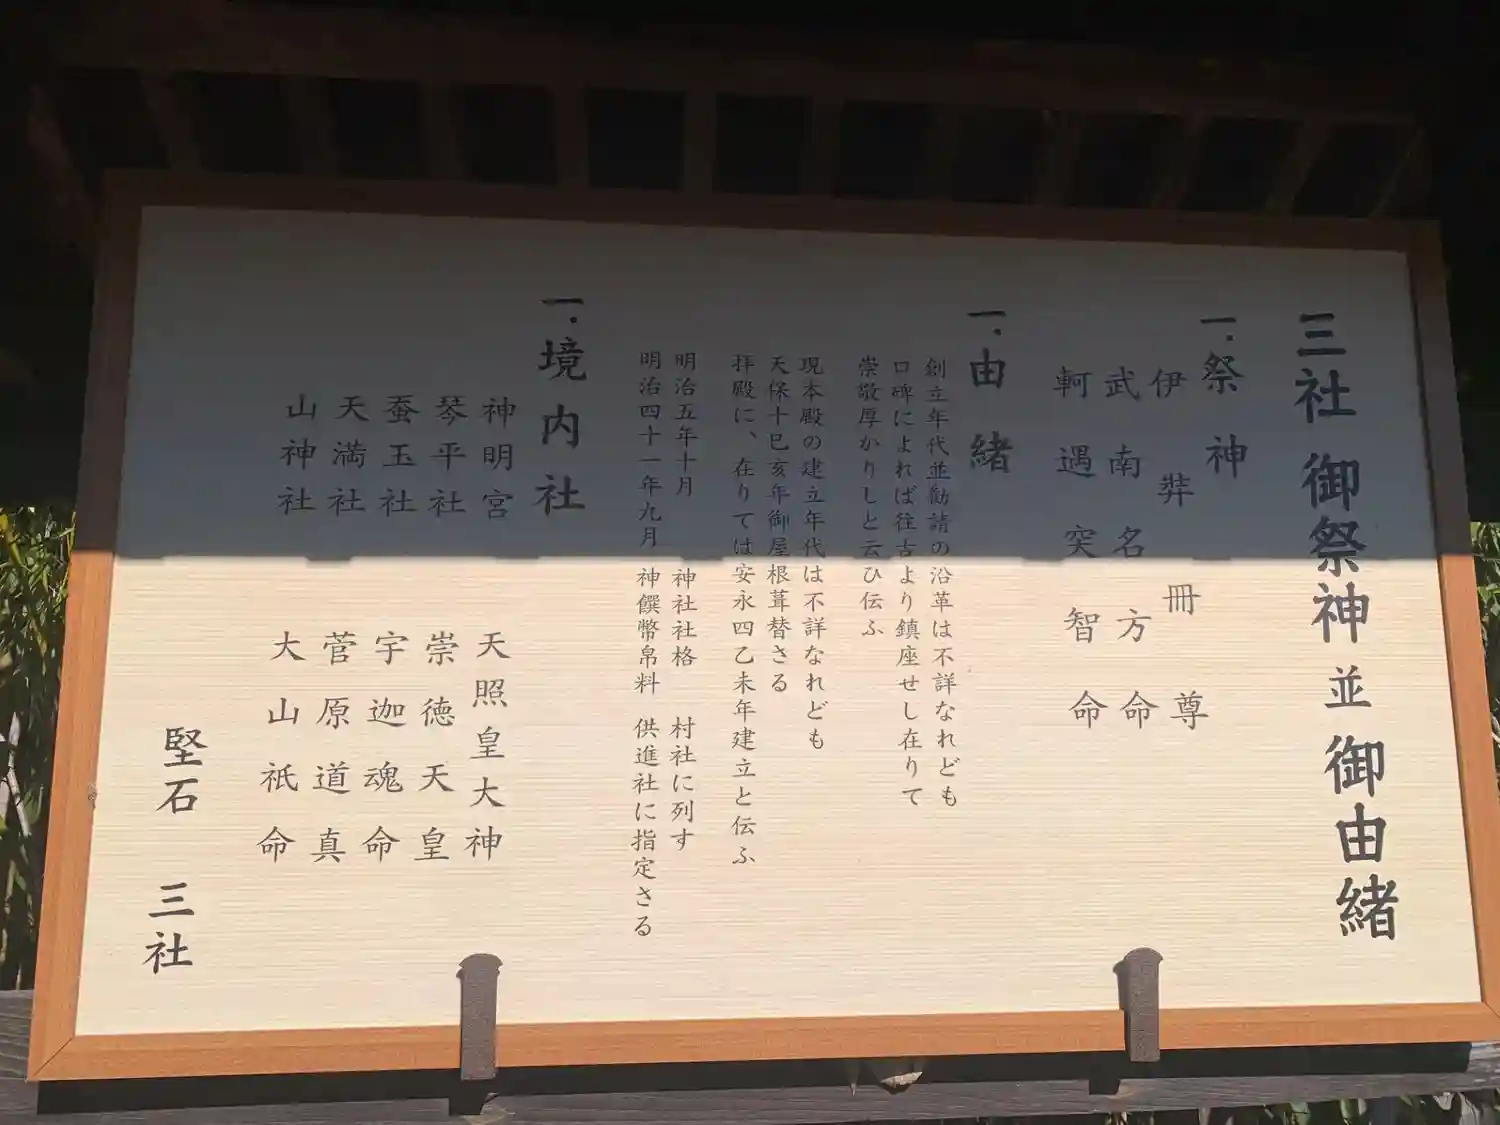 三社 御祭神 並 御由緒
一.祭神
伊弉冊尊
武南名方命
軻遇突智命
一.由緒
創立年代並勧請の沿革は不詳なれども
口碑によれば往古より鎮座せし在りて
崇敬厚かりしと云ひ伝ふ
現本殿の建立年代は不詳なれども
天保十巳亥年御屋根葺替さる
拝殿に、在りては安永四乙未年建立と伝ふ
明治五年十月 神社社格 村社に列す
明治四十一年九月 神饌幣帛料 供進社に指定さる
一.境内社
神明宮 天照皇大神
琴平社 崇徳天皇
蚕玉社 宇迦魂命
天満社 菅原道真
山神社 大山祇命
堅石 三社